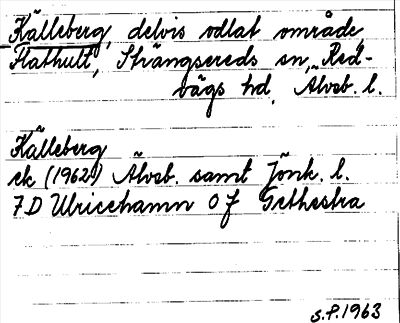 Källeberg, delvis odlat område,
Flathult, Strängsereds sn, Red-
vägs hd, Älvsb. l.
Källeberg
ek (1962) Älvsb. samt Jönk. l.
7D Ulricehamn 0f Gethestra
S.P. 1963